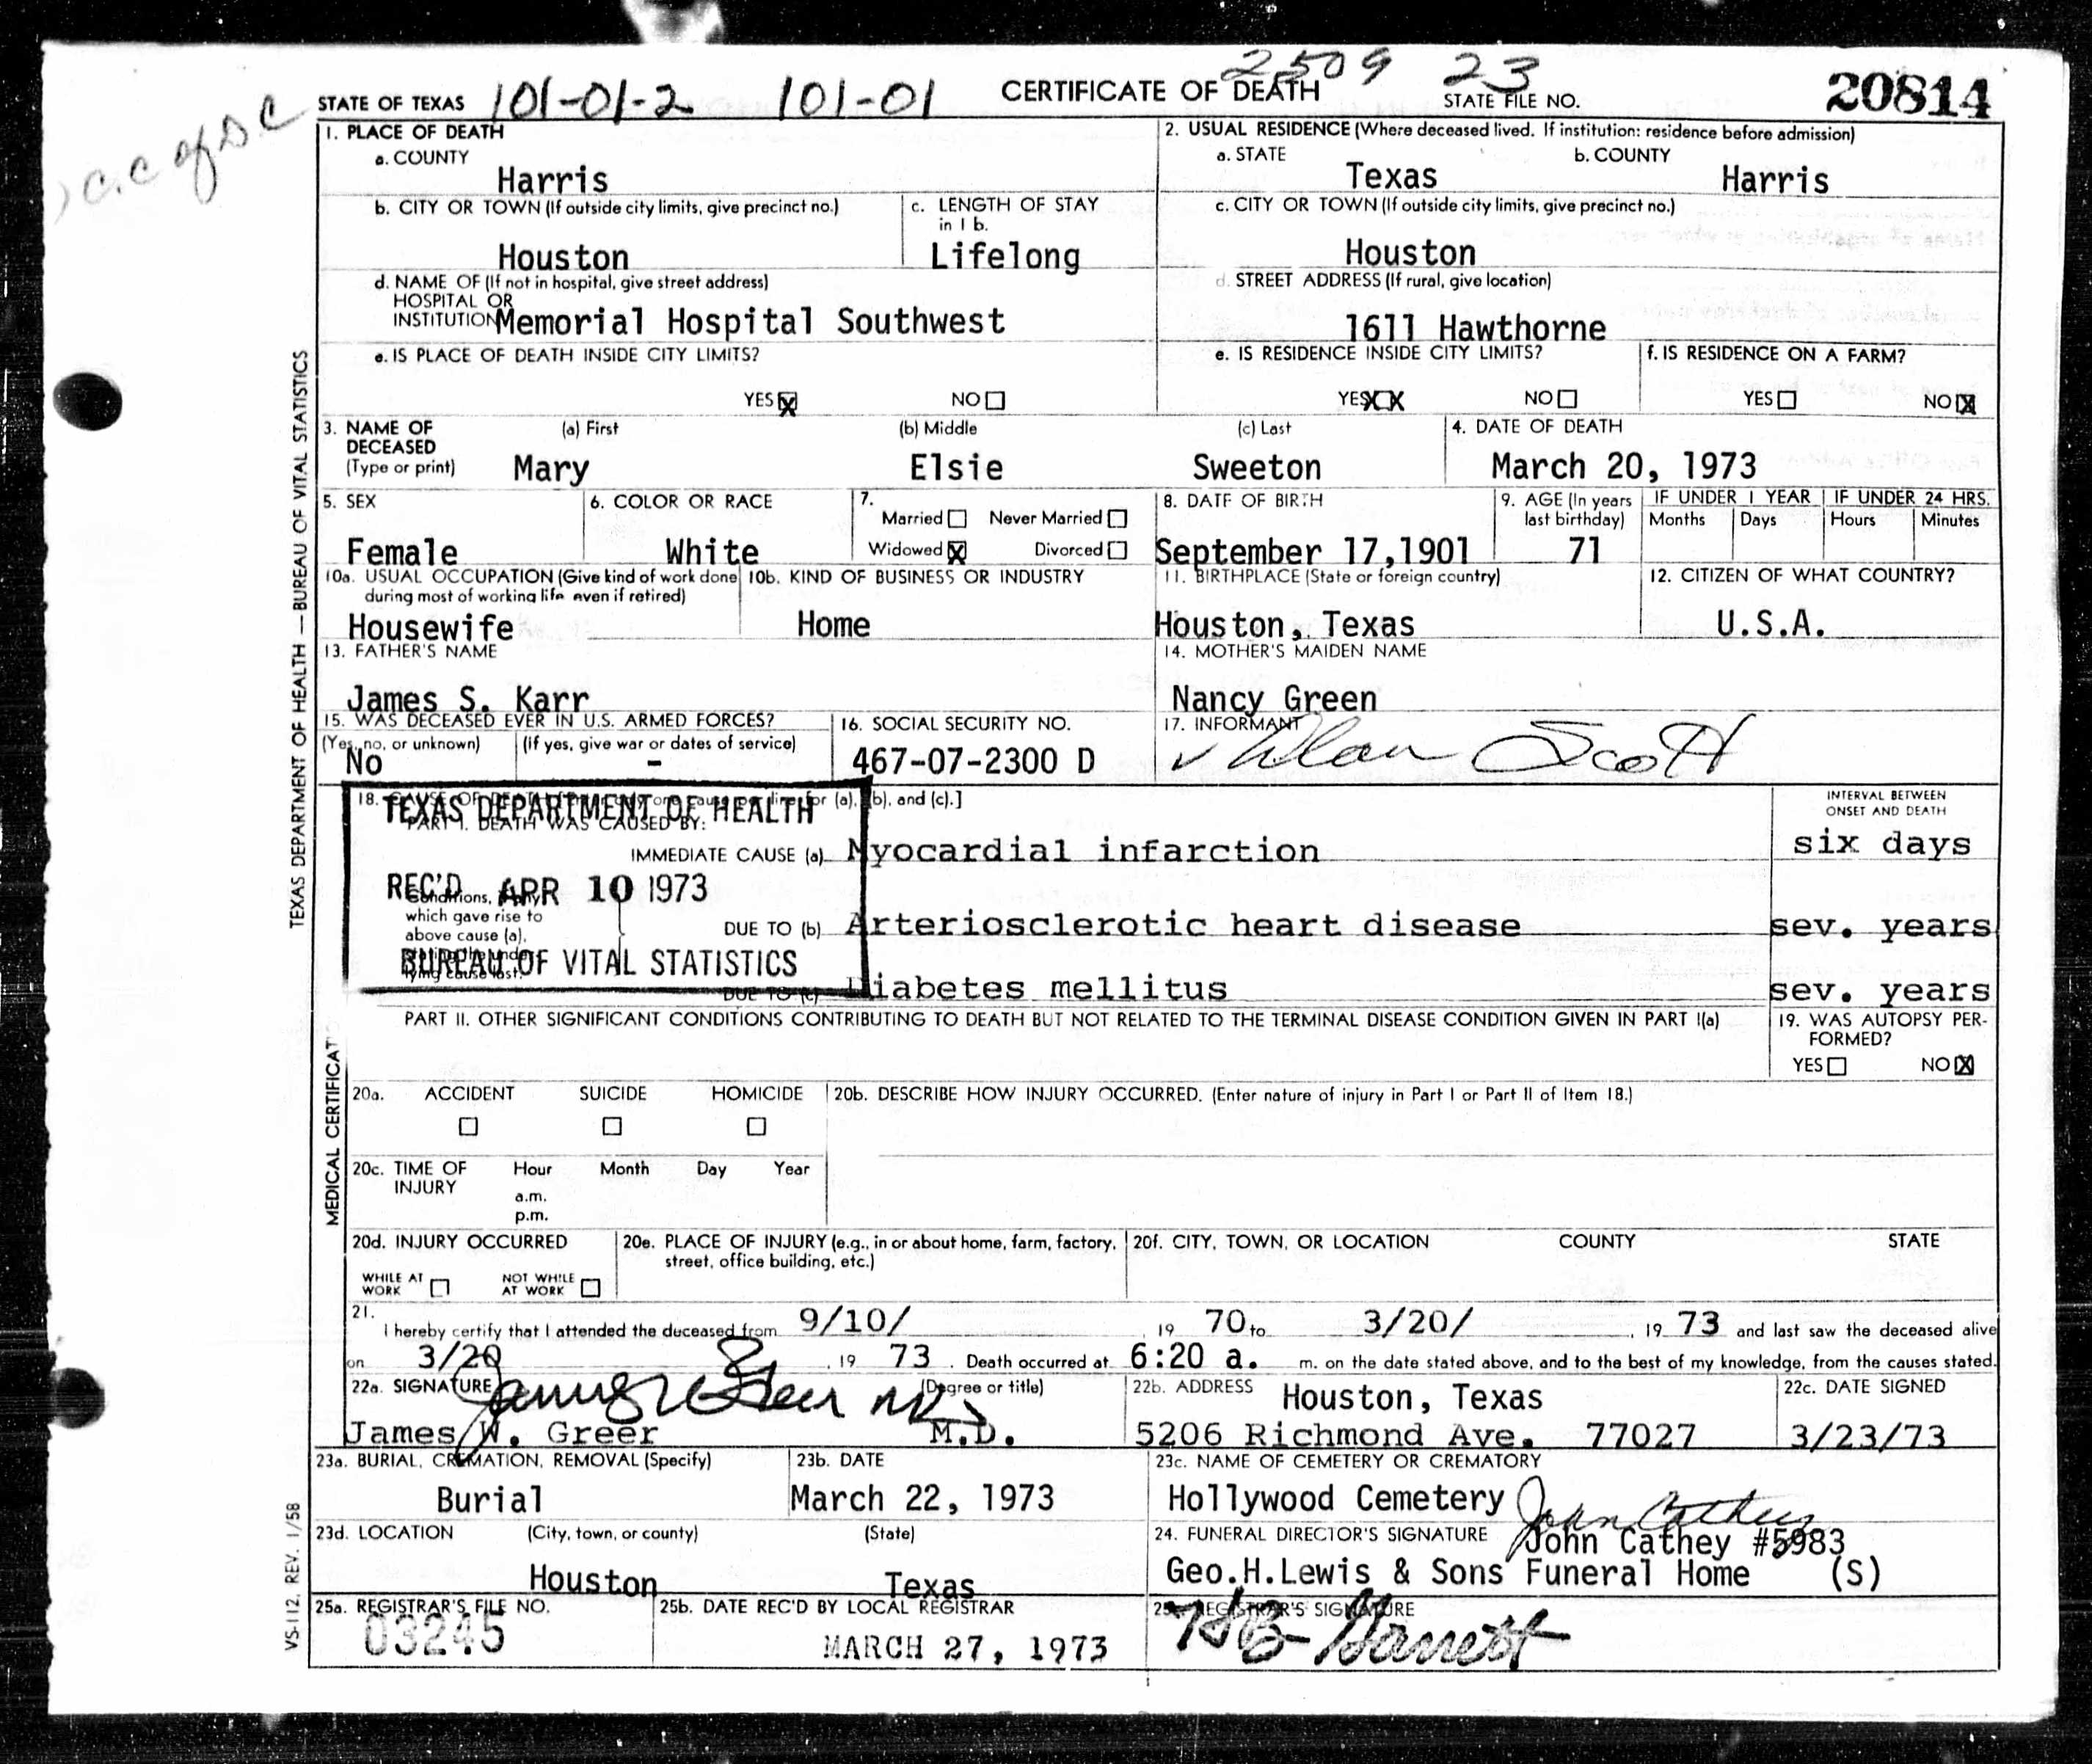 2509 23
STATE OF TEXAS 101-01-2 101-01 CERTIFICATE OF DEATH STATE FILE NO. 20814
c.c of D C
1. PLACE OF DEATH
a. COUNTY
Harris
2. USUAL RESIDENCE (Where deceased lived. If institution: residence before admission)
a. STATE b. COUNTY
Texas Harris
b. CITY OR TOWN (If outside city limits, give precinct no.)
Houston
c. LENGTH OF STAY
in 1 b.
Lifelong
c. CITY OR TOWN (If outside city limits, give precinct no.)
Houston
d. NAME OF (If not in hospital, give street address)
HOSPITAL OR
INSTITUTION Memorial Hospital Southwest
d. STREET ADDRESS (If rural, give location)
1611 Hawthorne
e. IS PLACE OF DEATH INSIDE CITY LIMITS?
YES X NO
e. IS RESIDENCE INSIDE CITY LIMITS?
YES XX NO
f. IS RESIDENCE ON A FARM?
YES NO X
3. NAME OF
DECEASED
(Type or print)
(a) First (b) Middle (c) Last
Mary Elsie Sweeton
4. DATE OF DEATH
March 20, 1973
5. SEX
Female
6. COLOR OR RACE
White
7.
Married Never Married
Widowed X Divorced
8. DATE OF BIRTH
September 17,1901
9. AGE (In years
last birthday)
71
IF UNDER 1 YEAR IF UNDER 24 HRS.
Months Days Hours Minutes
10a. USUAL OCCUPATION (Give kind of work done
during most of working life even if retired)
Housewife
10b. KIND OF BUSINESS OR INDUSTRY
Home
11. BIRTHPLACE (State or foreign country)
Houston, Texas
12. CITIZEN OF WHAT COUNTRY?
U.S.A.
13. FATHER'S NAME
James S. Karr
14. MOTHER'S MAIDEN NAME
Nancy Green
15. WAS DECEASED EVER IN U.S. ARMED FORCES?
(Yes, no, or unknown) (If yes, give war or dates of service)
No -
16. SOCIAL SECURITY NO.
467-07-2300 D
17. INFORMANT
Scott
18. CAUSE OF DEATH [Enter only one cause per line for (a), (b), and (c).]
PART I. DEATH WAS CAUSED BY:
IMMEDIATE CAUSE (a) Myocardial infarction
Conditions, if any,
which gave rise to
above cause (a),
stating the under-
lying cause last.
DUE TO (b) Arteriosclerotic heart disease
DUE TO (c) Diabetes mellitus
INTERVAL BETWEEN
ONSET AND DEATH
six days
sev. years
sev. years
TEXAS DEPARTMENT OF HEALTH
REC'D APR 10 1973
BUREAU OF VITAL STATISTICS
PART II. OTHER SIGNIFICANT CONDITIONS CONTRIBUTING TO DEATH BUT NOT RELATED TO THE TERMINAL DISEASE CONDITION GIVEN IN PART I(a)
19. WAS AUTOPSY PER-
FORMED?
YES NO X
20a. ACCIDENT SUICIDE HOMICIDE
20b. DESCRIBE HOW INJURY OCCURRED. (Enter nature of injury in Part I or Part II of Item 18.)
20c. TIME OF
INJURY
Hour Month Day Year
a.m.
p.m.
20d. INJURY OCCURRED
WHILE AT
WORK
NOT WHILE
AT WORK
20e. PLACE OF INJURY (e.g., in or about home, farm, factory,
street, office building, etc.)
20f. CITY, TOWN, OR LOCATION COUNTY STATE
21.
I hereby certify that I attended the deceased from 9/10/, 19 70 to 3/20/, 19 73 and last saw the deceased alive
on 3/20, 19 73. Death occurred at 6:20 a. m. on the date stated above, and to the best of my knowledge, from the causes stated.
22a. SIGNATURE (Degree or title)
James W. Greer M.D.
James W. Greer M.D.
22b. ADDRESS Houston, Texas
5206 Richmond Ave. 77027
22c. DATE SIGNED
3/23/73
23a. BURIAL, CREMATION, REMOVAL (Specify)
Burial
23b. DATE
March 22, 1973
23c. NAME OF CEMETERY OR CREMATORY
Hollywood Cemetery
23d. LOCATION (City, town, or county) (State)
Houston Texas
John Cathey
24. FUNERAL DIRECTOR'S SIGNATURE John Cathey #5983
Geo.H.Lewis & Sons Funeral Home (S)
25a. REGISTRAR'S FILE NO.
03245
25b. DATE REC'D BY LOCAL REGISTRAR
MARCH 27, 1973
REGISTRAR'S SIGNATURE
TEXAS DEPARTMENT OF HEALTH — BUREAU OF VITAL STATISTICS
MEDICAL CERTIFICAT
VS-112, REV. 1/58